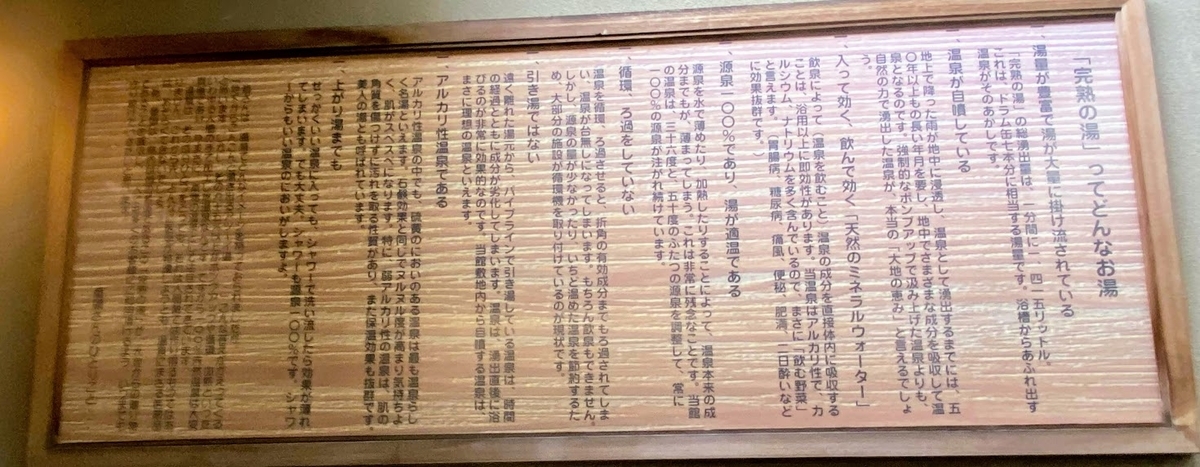 「完熟の湯」ってどんなお湯
一、湯量が豊富で湯が大量に掛け流されている
「完熟の湯」の総湧出量は、一分間に一、四一五リットル。
これは、ドラム缶七本分に相当する湯量です。浴槽からあふれ出す
温泉がそのあかしです。
一、温泉が自噴している
地上で降った雨が地中に浸透し、温泉として湧出するまでには、五
〇年以上もの長い年月を要し、地中でさまざまな成分を吸収して温
泉となるのです。強制的なポンプアップで汲み上げた温泉よりも、
自然の力で湧出した温泉が、本当の「大地の恵み」と言えるでしょ
う。
一、入って効く、飲んで効く「天然のミネラルウォーター」
飲泉によって（温泉を飲むこと）温泉の成分を直接体内に吸収する
ことは、浴用以上に即効性があります。当温泉はアルカリ性で、カ
ルシウム、ナトリウムを多く含んでいるので、まさに「飲む野菜」
と言えます。（胃腸病、糖尿病、痛風、便秘、肥満、二日酔いなど
に効果抜群です。）
一、源泉一〇〇％であり、湯が適温である
源泉を水で薄めたり、加熱したりすることによって、温泉本来の成
分までもが、薄まってしまう。これは非常に残念なことです。当館
の温泉は、三十六度と、五十度のふたつの源泉を調整して、常に
一〇〇％の源泉が注がれ続けています。
一、循環、ろ過をしていない
温泉を循環、ろ過させると、折角の有効成分までもろ過されてしま
い、温泉が台無しになってしまいます。もちろん飲泉もできません。
しかし、源泉の量が少なかったり、いちど温めた温泉を節約するた
め、大部分の施設が循環機を取り付けているのが現状です。
一、引き湯ではない
遠く離れた湯元から、パイプラインで引き湯している温泉は、時間
の経過とともに成分が劣化してしまいます。温泉は、湧出直後に浴
びるのが非常に効果的なのです。当館敷地内から自噴する温泉は
まさに理想の温泉といえます。
一、アルカリ性温泉である
アルカリ性温泉の中でも、硫黄のにおいのある温泉は最も温泉らし
く名湯といえます。石鹸効果と同じでヌルヌル度が高まり気持ちよ
く、肌がスベスベになります。特に、弱アルカリ性の温泉は、肌の
角質を傷つけずに汚れを取る性質があり、また保温効果も抜群です。
美人の湯とも呼ばれています。
一、上がり湯までも
せっかくいい温泉に入っても、シャワーで洗い流したら効果が薄れ
てしまいます。でも大丈夫、シャワーも源泉一〇〇％です。シャワ
ーからもいい温泉のにおいがしますよ。